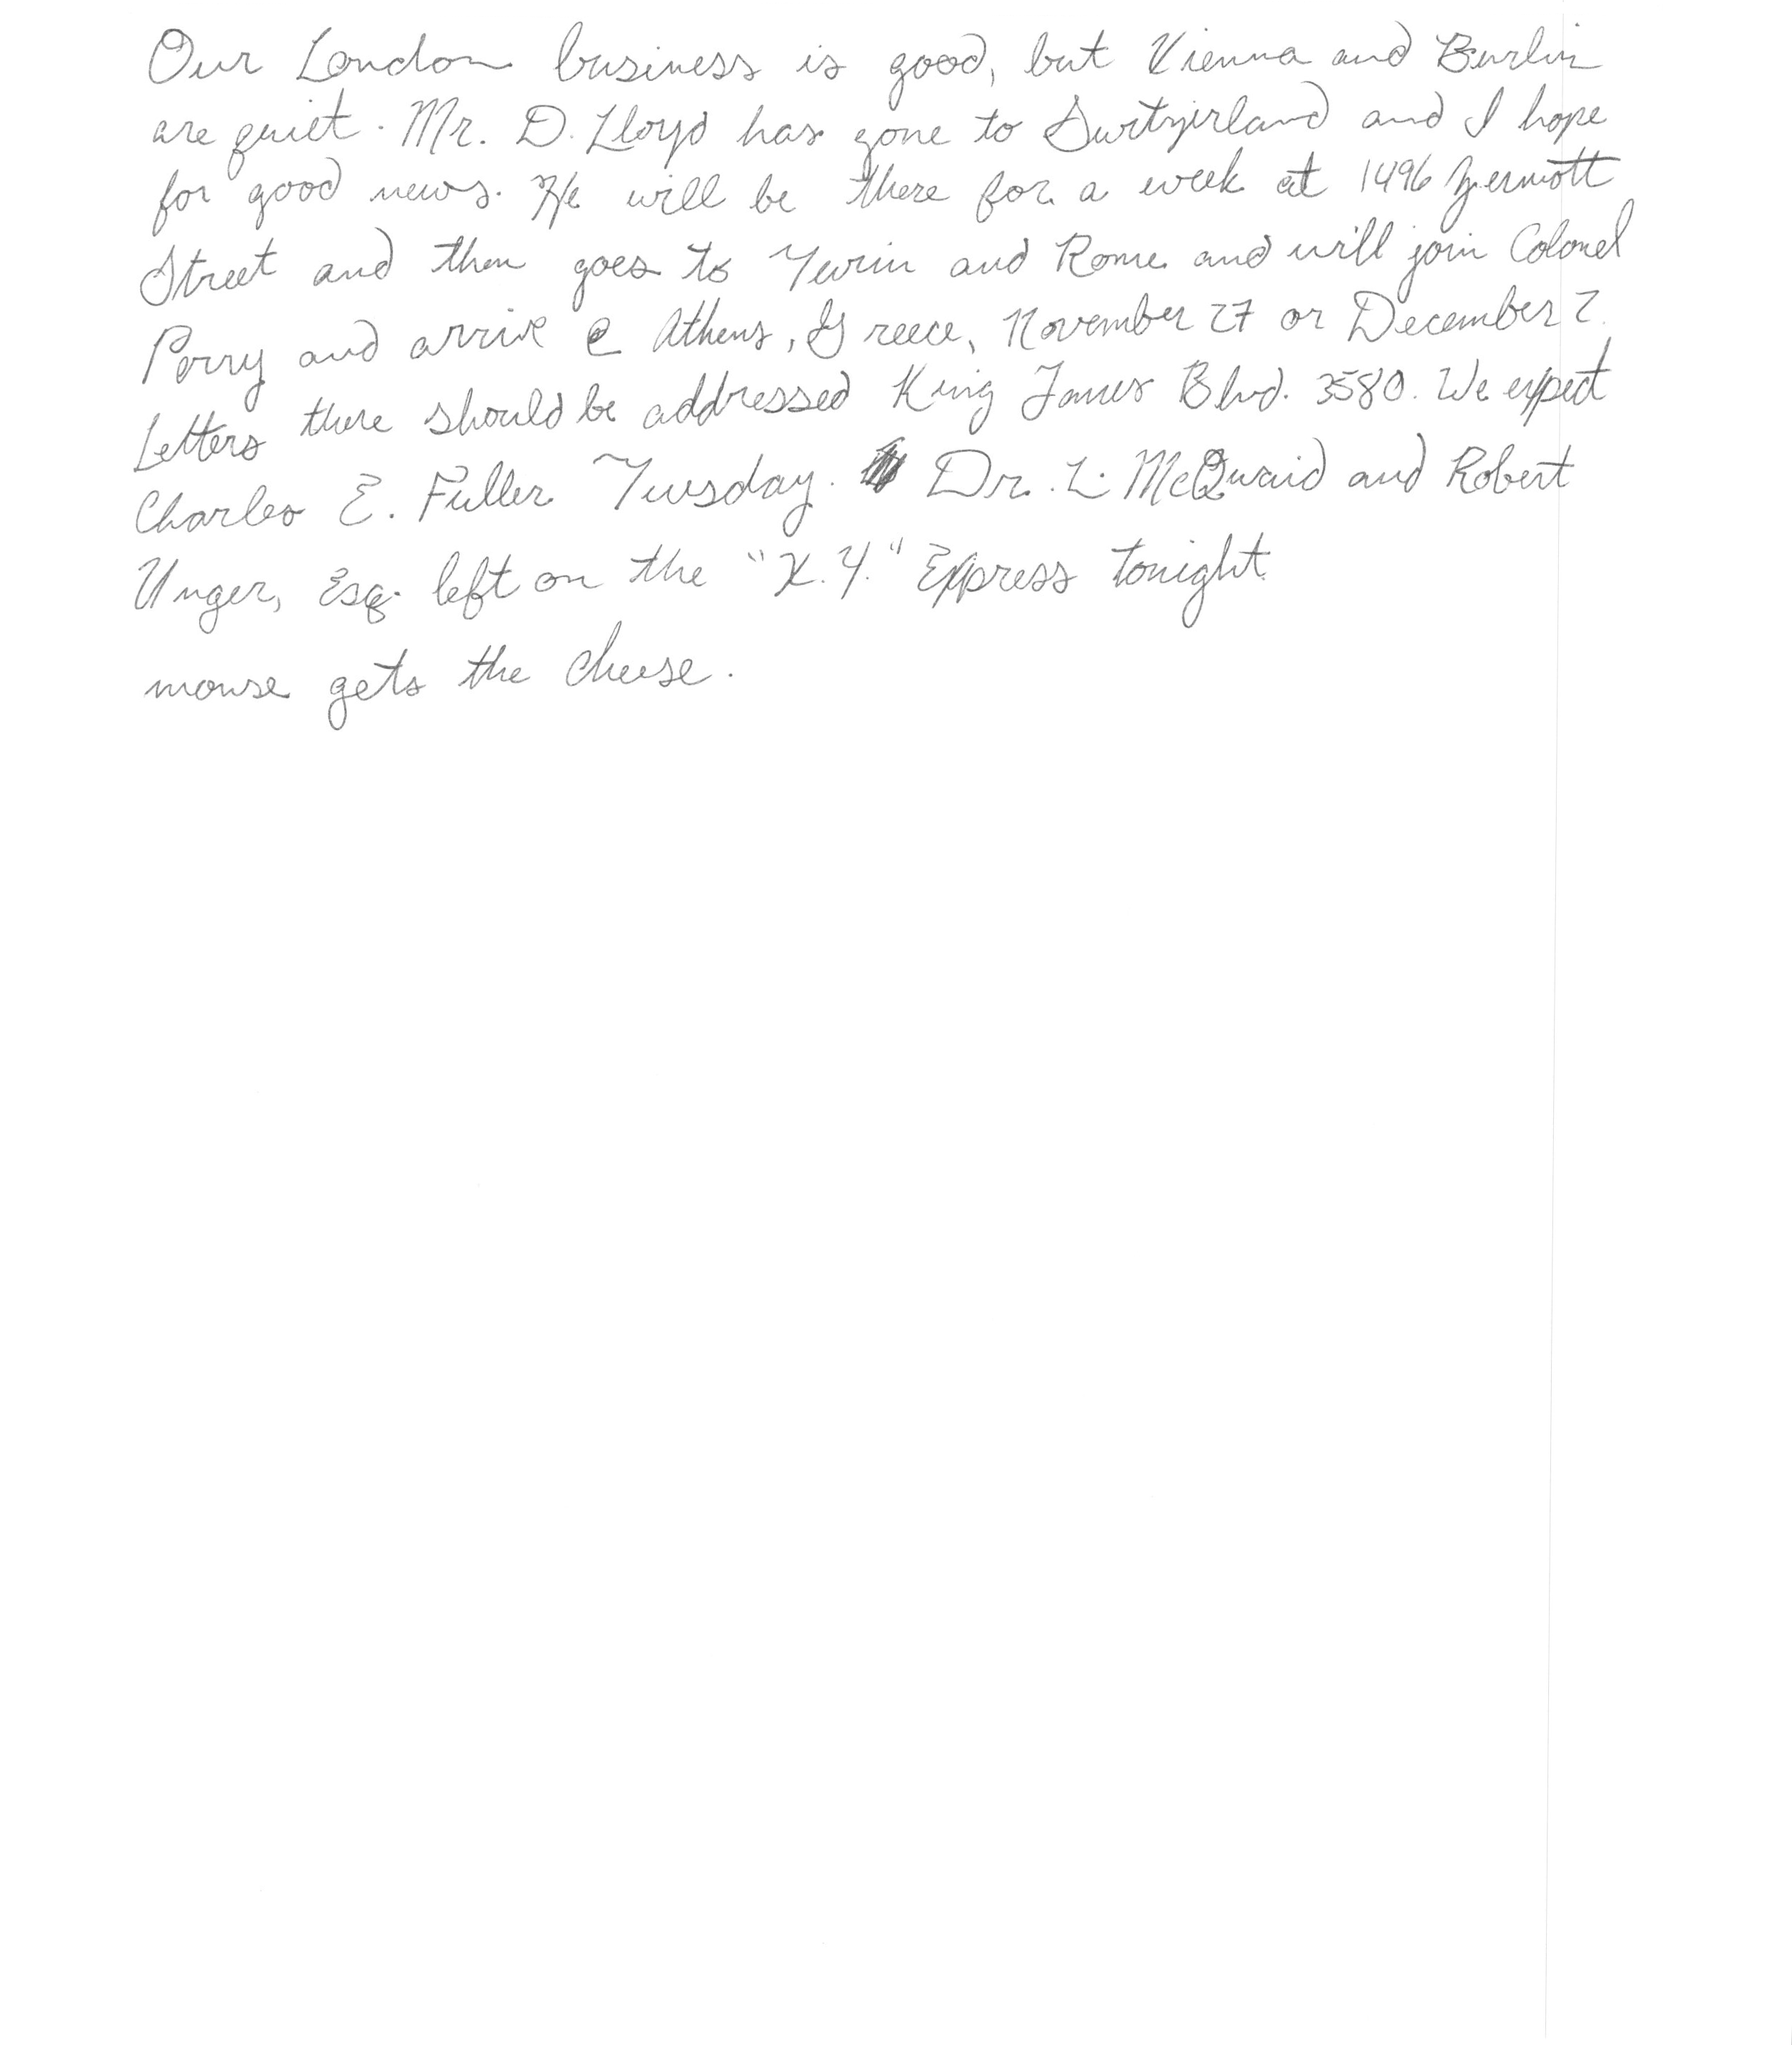 Our London business is good, but Vienna and Berlin
are quiet. Mr. D. Lloyd has gone to Switzerland and I hope
for good news. He will be there for a week at 1496 Zermott
Street and then goes to Turin and Rome and will join Colonel
Perry and arrive @ Athens, Greece, November 27 or December 2.
Letters there should be addressed King James Blvd. 3580. We expect
Charles E. Fuller Tuesday. Dr. L. McQuaid and Robert
Unger, Esq. left on the "X.Y." Express tonight.
mouse gets the cheese.